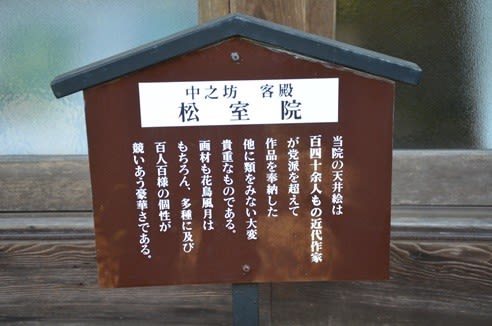 中之坊　客殿
松室院
当院の天井絵は
百四十余人もの近代作家
が党派を超えて
作品を奉納した
他に類をみない大変
貴重なものである。
画材も花鳥風月は
もちろん、多種に及び
百人百様の個性が
競いあう豪華さである。